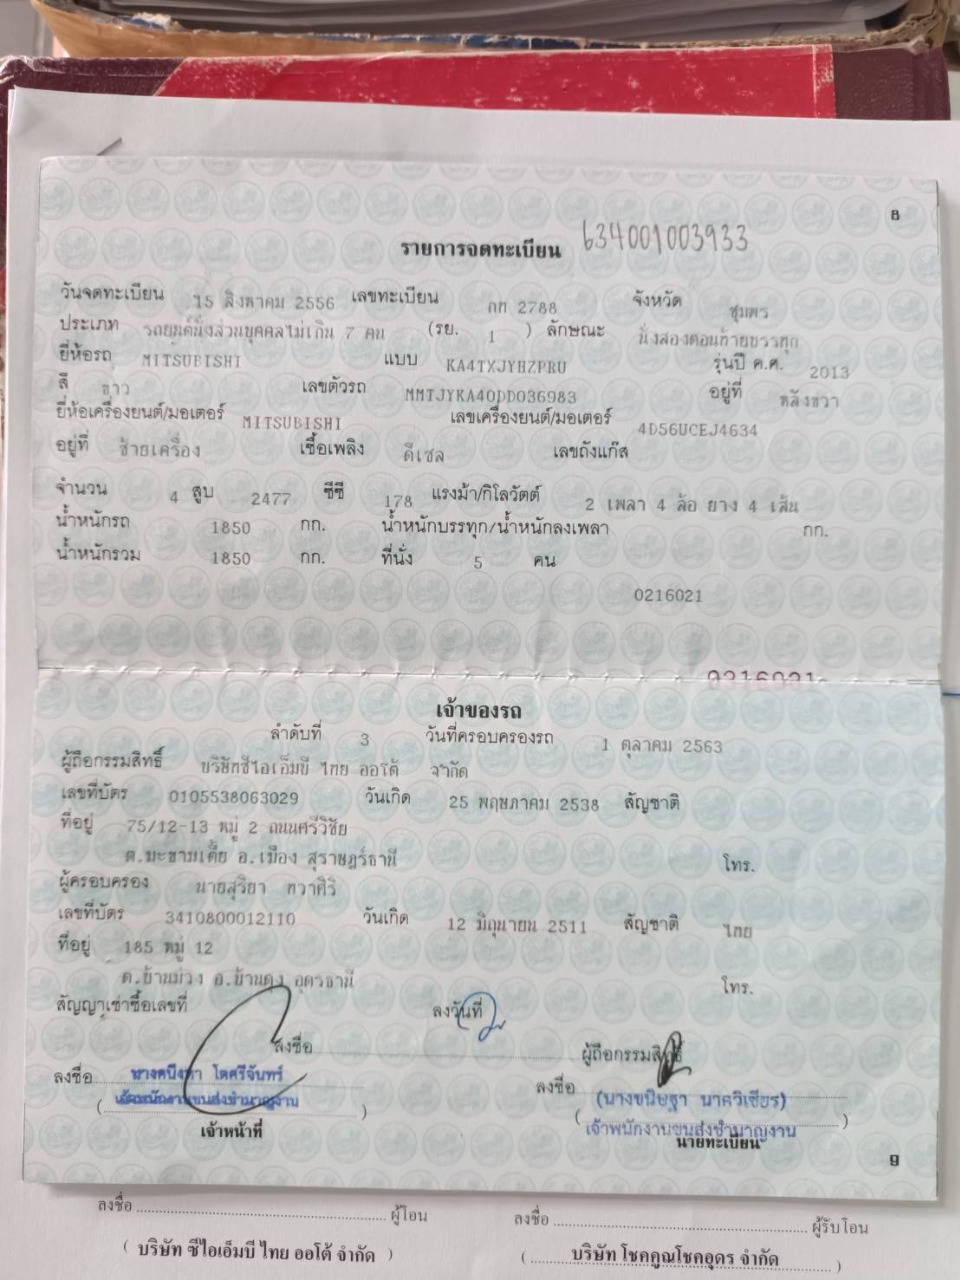 8
รายการจดทะเบียน 634001003933
วันจดทะเบียน 15 สิงหาคม 2556 เลขทะเบียน กก 2788 จังหวัด ชุมพร
ประเภท รถยนต์นั่งส่วนบุคคลไม่เกิน 7 คน (รย. 1 ) ลักษณะ นั่งสองตอนท้ายบรรทุก
ยี่ห้อรถ MITSUBISHI แบบ KA4TXJYHZPRU รุ่นปี ค.ศ. 2013
สี ขาว เลขตัวรถ MMTJYKA40DD036983 อยู่ที่ หลังขวา
ยี่ห้อเครื่องยนต์/มอเตอร์ MITSUBISHI เลขเครื่องยนต์/มอเตอร์ 4D56UCEJ4634
อยู่ที่ ซ้ายเครื่อง เชื้อเพลิง ดีเซล เลขถังแก๊ส
จำนวน 4 สูบ 2477 ซีซี 178 แรงม้า/กิโลวัตต์ 2 เพลา 4 ล้อ ยาง 4 เส้น
น้ำหนักรถ 1850 กก. น้ำหนักบรรทุก/น้ำหนักลงเพลา กก.
น้ำหนักรวม 1850 กก. ที่นั่ง 5 คน
0216021
0216021
เจ้าของรถ
ลำดับที่ 3 วันที่ครอบครองรถ 1 ตุลาคม 2563
ผู้ถือกรรมสิทธิ์ บริษัทซีไอเอ็มบี ไทย ออโต้ จำกัด
เลขที่บัตร 0105538063029 วันเกิด 25 พฤษภาคม 2538 สัญชาติ
ที่อยู่ 75/12-13 หมู่ 2 ถนนศรีวิชัย
ต.มะขามเตี้ย อ.เมือง สุราษฎร์ธานี โทร.
ผู้ครอบครอง นายสุริยา ทวาศิริ
เลขที่บัตร 3410800012110 วันเกิด 12 มิถุนายน 2511 สัญชาติ ไทย
ที่อยู่ 185 หมู่ 12
ต.บ้านม่วง อ.บ้านดุง อุดรธานี โทร.
สัญญาเช่าซื้อเลขที่ ลงวันที่
ลงชื่อ ผู้ถือกรรมสิทธิ์
ลงชื่อ โตศรีจันทร์ ลงชื่อ (นางขนิษฐา นาควิเชียร)
( เจ้าพนักงานขนส่งชำนาญงาน ) ( เจ้าพนักงานขนส่งชำนาญงาน )
เจ้าหน้าที่ นายทะเบียน
9
ลงชื่อ ผู้โอน ลงชื่อ ผู้รับโอน
( บริษัท ซีไอเอ็มบี ไทย ออโต้ จำกัด ) ( บริษัท โชคคูณโชคอุดร จำกัด )